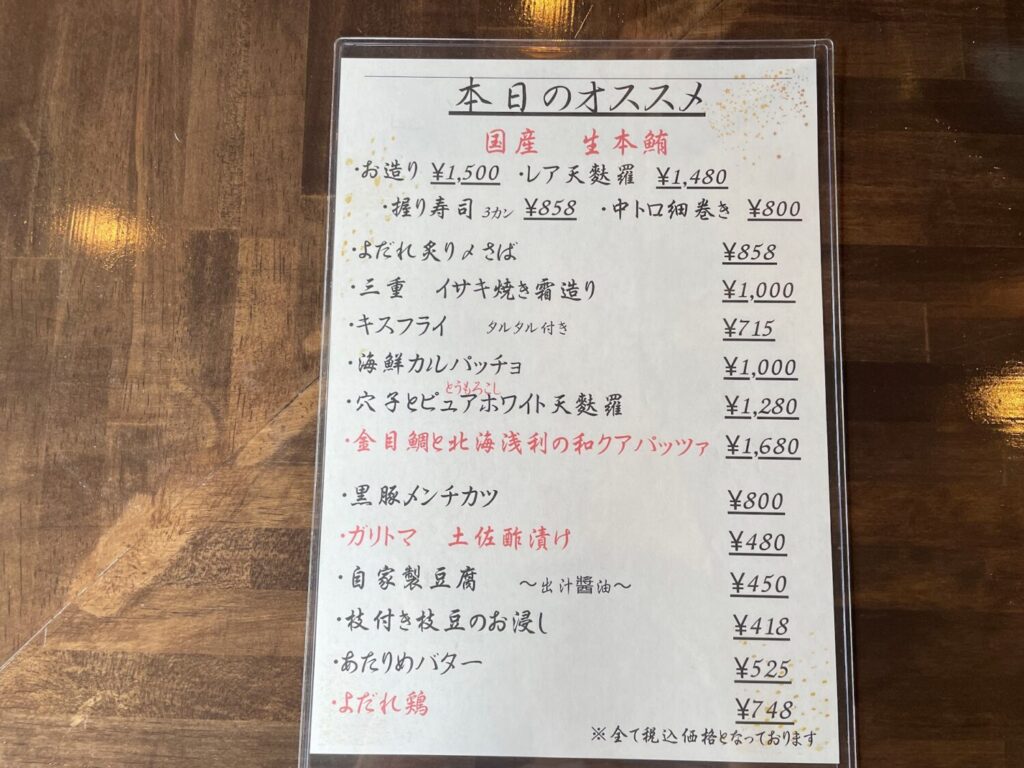 本日のオススメ
国産 生本鮪
・お造り ¥1,500 ・レア天麩羅 ¥1,480
・握り寿司 3カン ¥858 ・中トロ細巻き ¥800
・よだれ炙り〆さば ¥858
・三重 イサキ焼き霜造り ¥1,000
・キスフライ タルタル付き ¥715
・海鮮カルパッチョ ¥1,000
とうもろこし
・穴子とピュアホワイト天麩羅 ¥1,280
・金目鯛と北海浅利の和クアパッツァ ¥1,680
・黒豚メンチカツ ¥800
・ガリトマ 土佐酢漬け ¥480
・自家製豆腐 ～出汁醬油～ ¥450
・枝付き枝豆のお浸し ¥418
・あたりめバター ¥525
・よだれ鶏 ¥748
※全て税込価格となっております